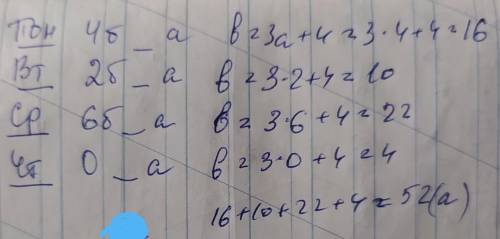 Пон 4б _ а в = 3а + 4 = 3 · 4 + 4 = 16
Вт 2б _ а в = 3 · 2 + 4 = 10
Ср 6б _ а в = 3 · 6 + 4 = 22
Чт 0 _ а в = 3 · 0 + 4 = 4
16 + 10 + 22 + 4 = 52 (а)